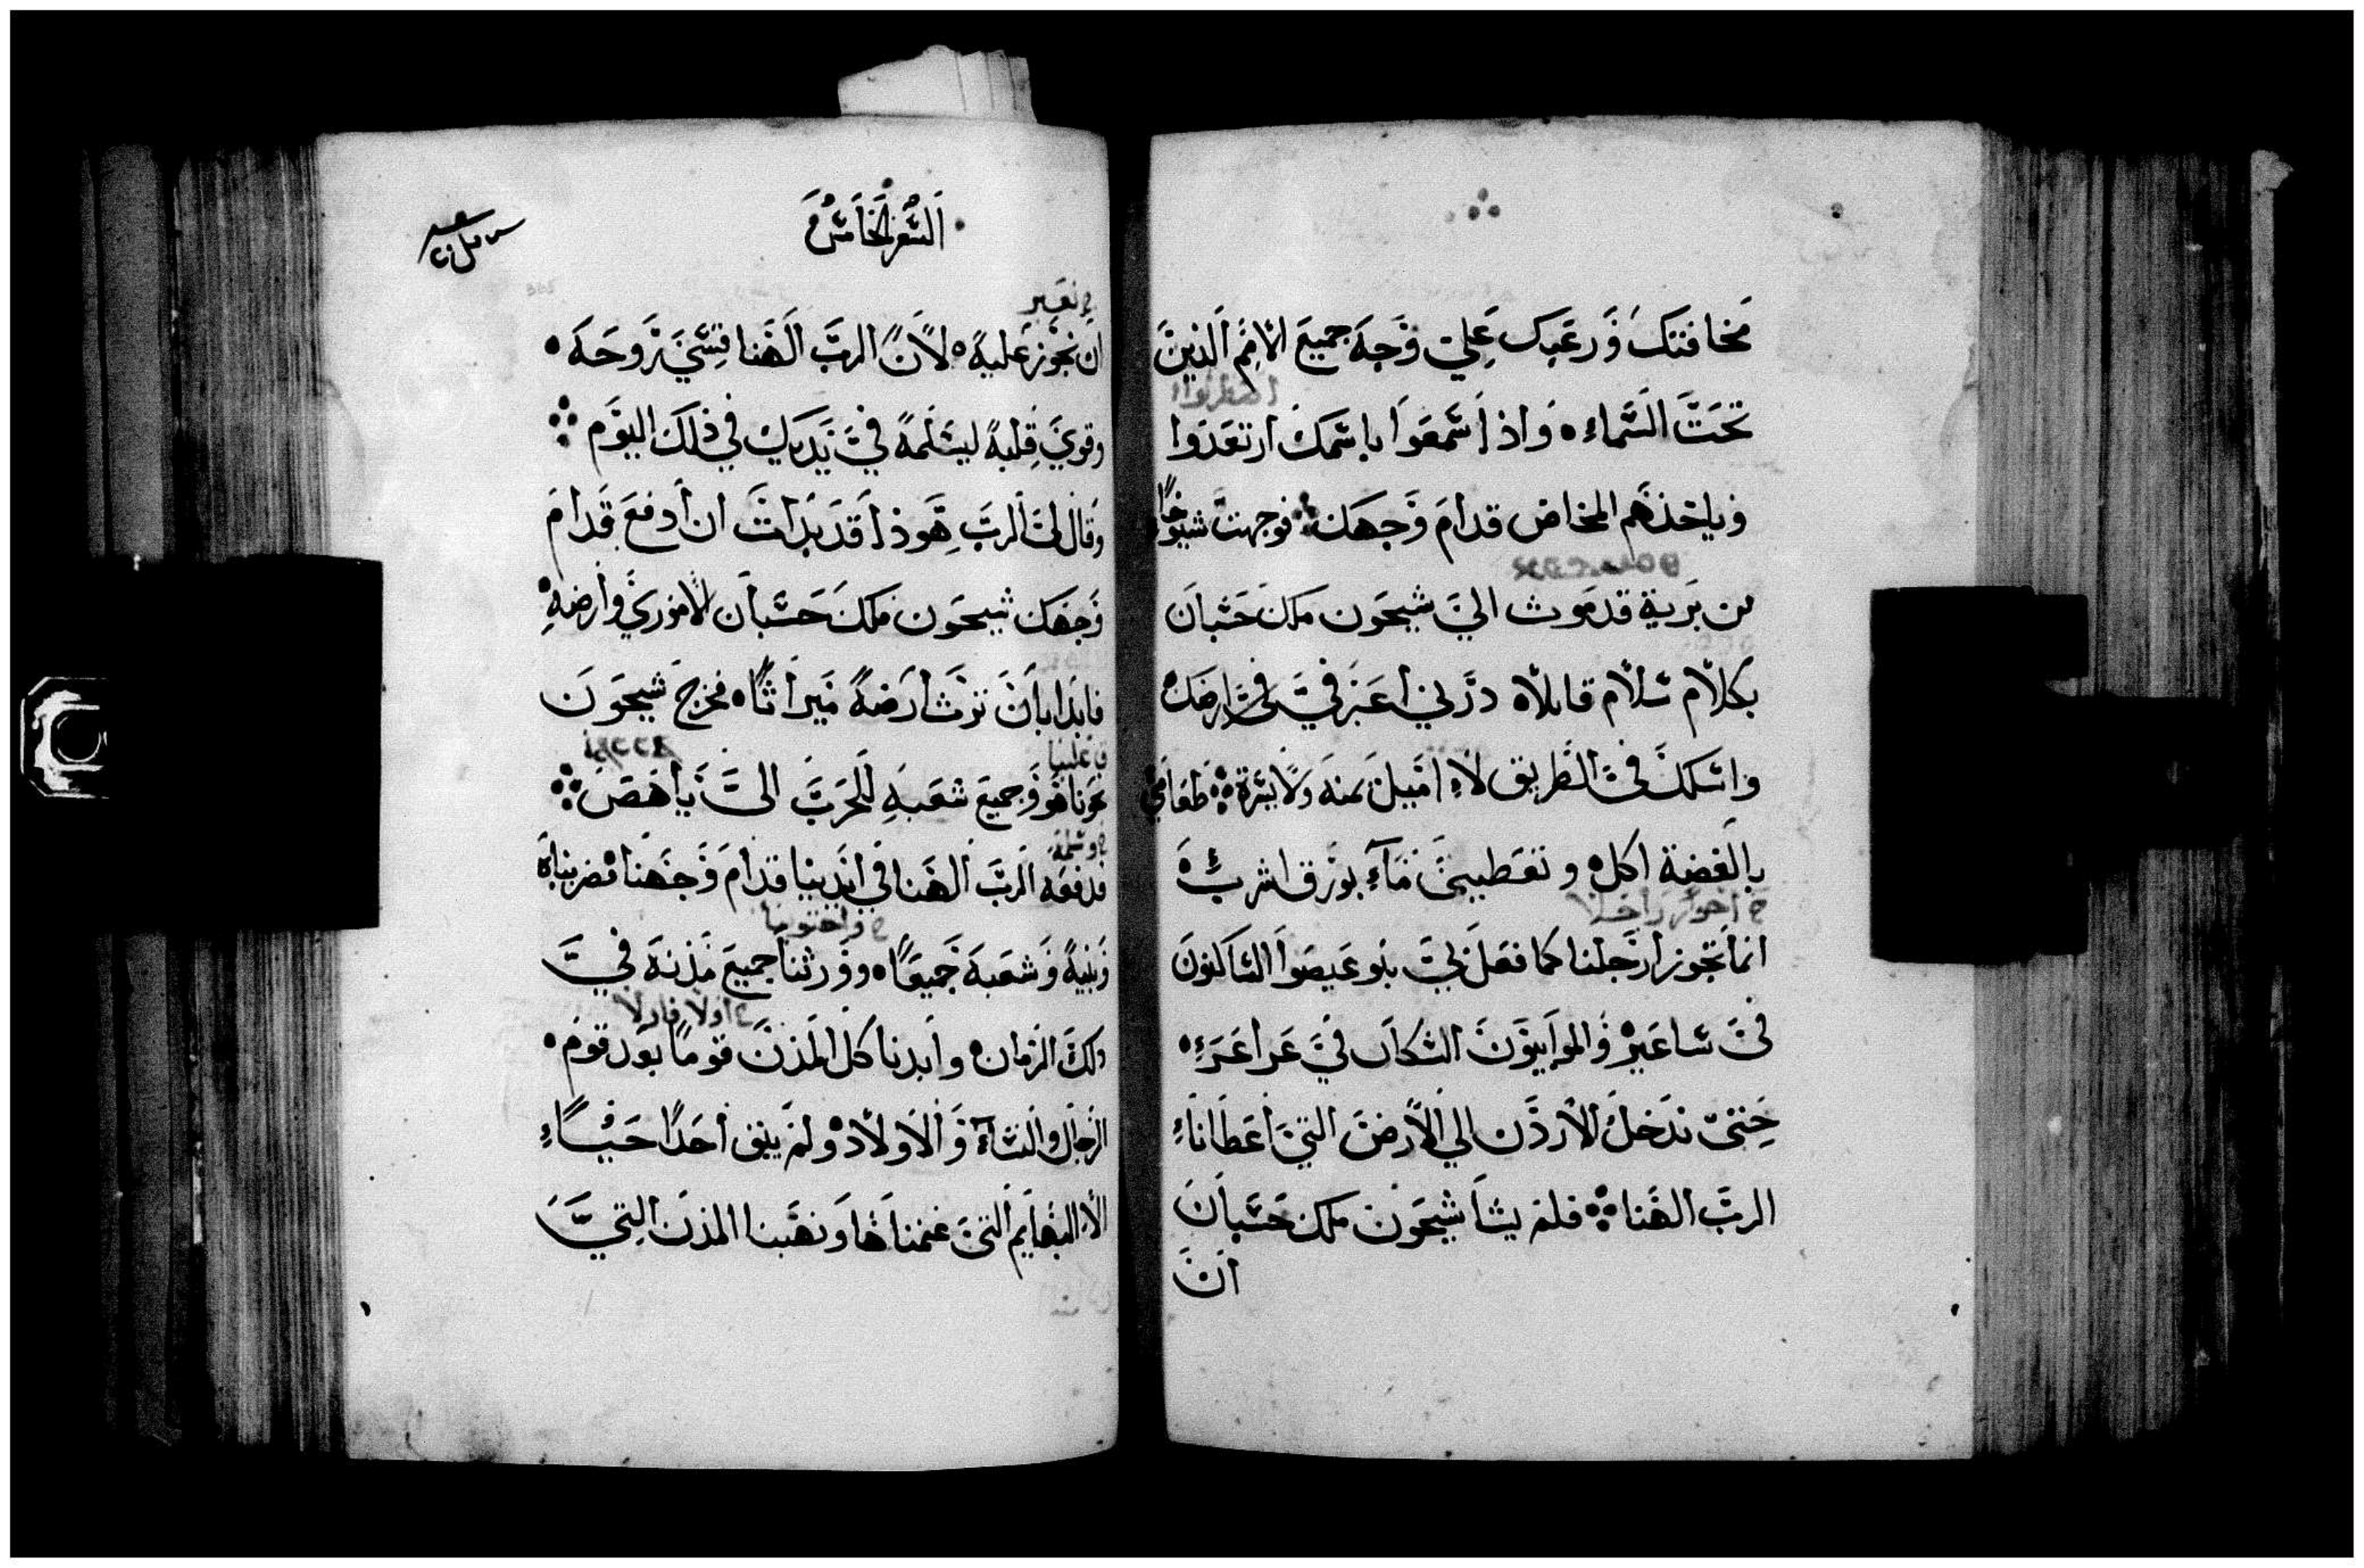 مخافتك ورعبك علي وجه جميع الامم الذين
اضطربوا
تحت السماء ٥ واذا سمعوا باسمك ارتعدوا
وياخذهم المخاض قدام وجهك ۞ فوجهت شيوخا
من برية قدموث الي شيحون ملك حسبان
بكلام سلام قايلاه درني اعبر في ارضك
واسلك في الطريق لا اميل يمنه ولا يسرة ۞ طعامي
بالفضة اكله و تعطيني مآء بورق اشربه
انما تجوز ارجلنا كما فعل لي بنو عيصوا الساكنون
في ساعير والموابيون السكان في عراعر ٥
حتي ندخل الاردن الي الارض التي اعطانا
الرب الهنا ۞ فلم يشا شيحون ملك حسبان
ان
السفر الخامس
نعبر
ان نجوز عليه ٥ لان الرب الهنا قسي روحه ٥
وقوي قلبه ليسلمه في يديك في ذلك اليوم ۞
وقال لي الرب هوذا قد بدات ان ادفع قدام
وجهك شيحون ملك حسبان الاموري وارضه
فابدا بان ترث ارضه ميراثا ٥ فخرج شيحون
نحونا هو وجميع شعبه للحرب الي ياهص ۞
وسلمه
فدفعه الرب الهنا في ايدينا قدام وجهنا ٥ فضربناه
واحتوينا
وبنيه وشعبه جميعا ٥ وورثنا جميع مدنه في
اولا فاولا
ذلك الزمان ٥ وابدنا كل المدن قوما بعد قوم ٥
الرجال والنسآء والاولاد ٥ ولم يبق احدا حيا
الا البهايم التي غنمناها ونهبنا المدن التي